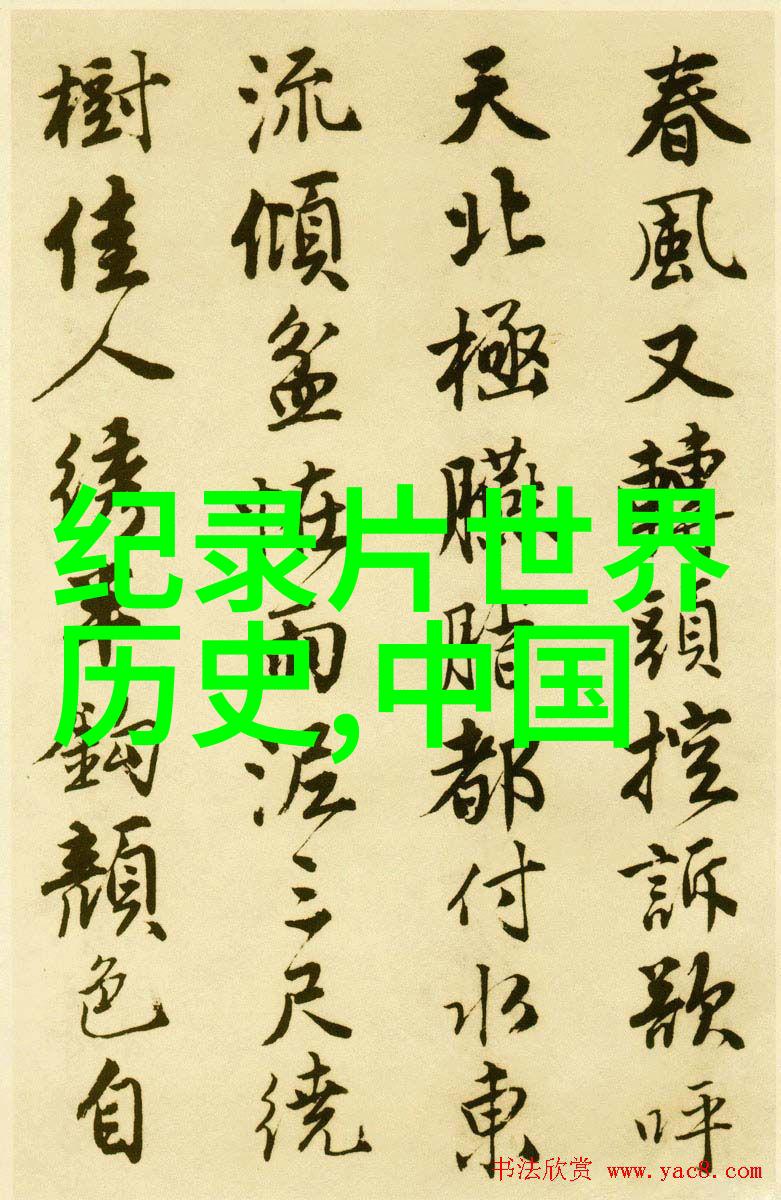 春風又轉頭控訴欲呼
天北極臙脂都付水東
流傾盆怪雨泥三尺繞
樹佳人繡半鉤顏色自
纪录片世界
历史,中国
书法欣赏 www.yac8.com